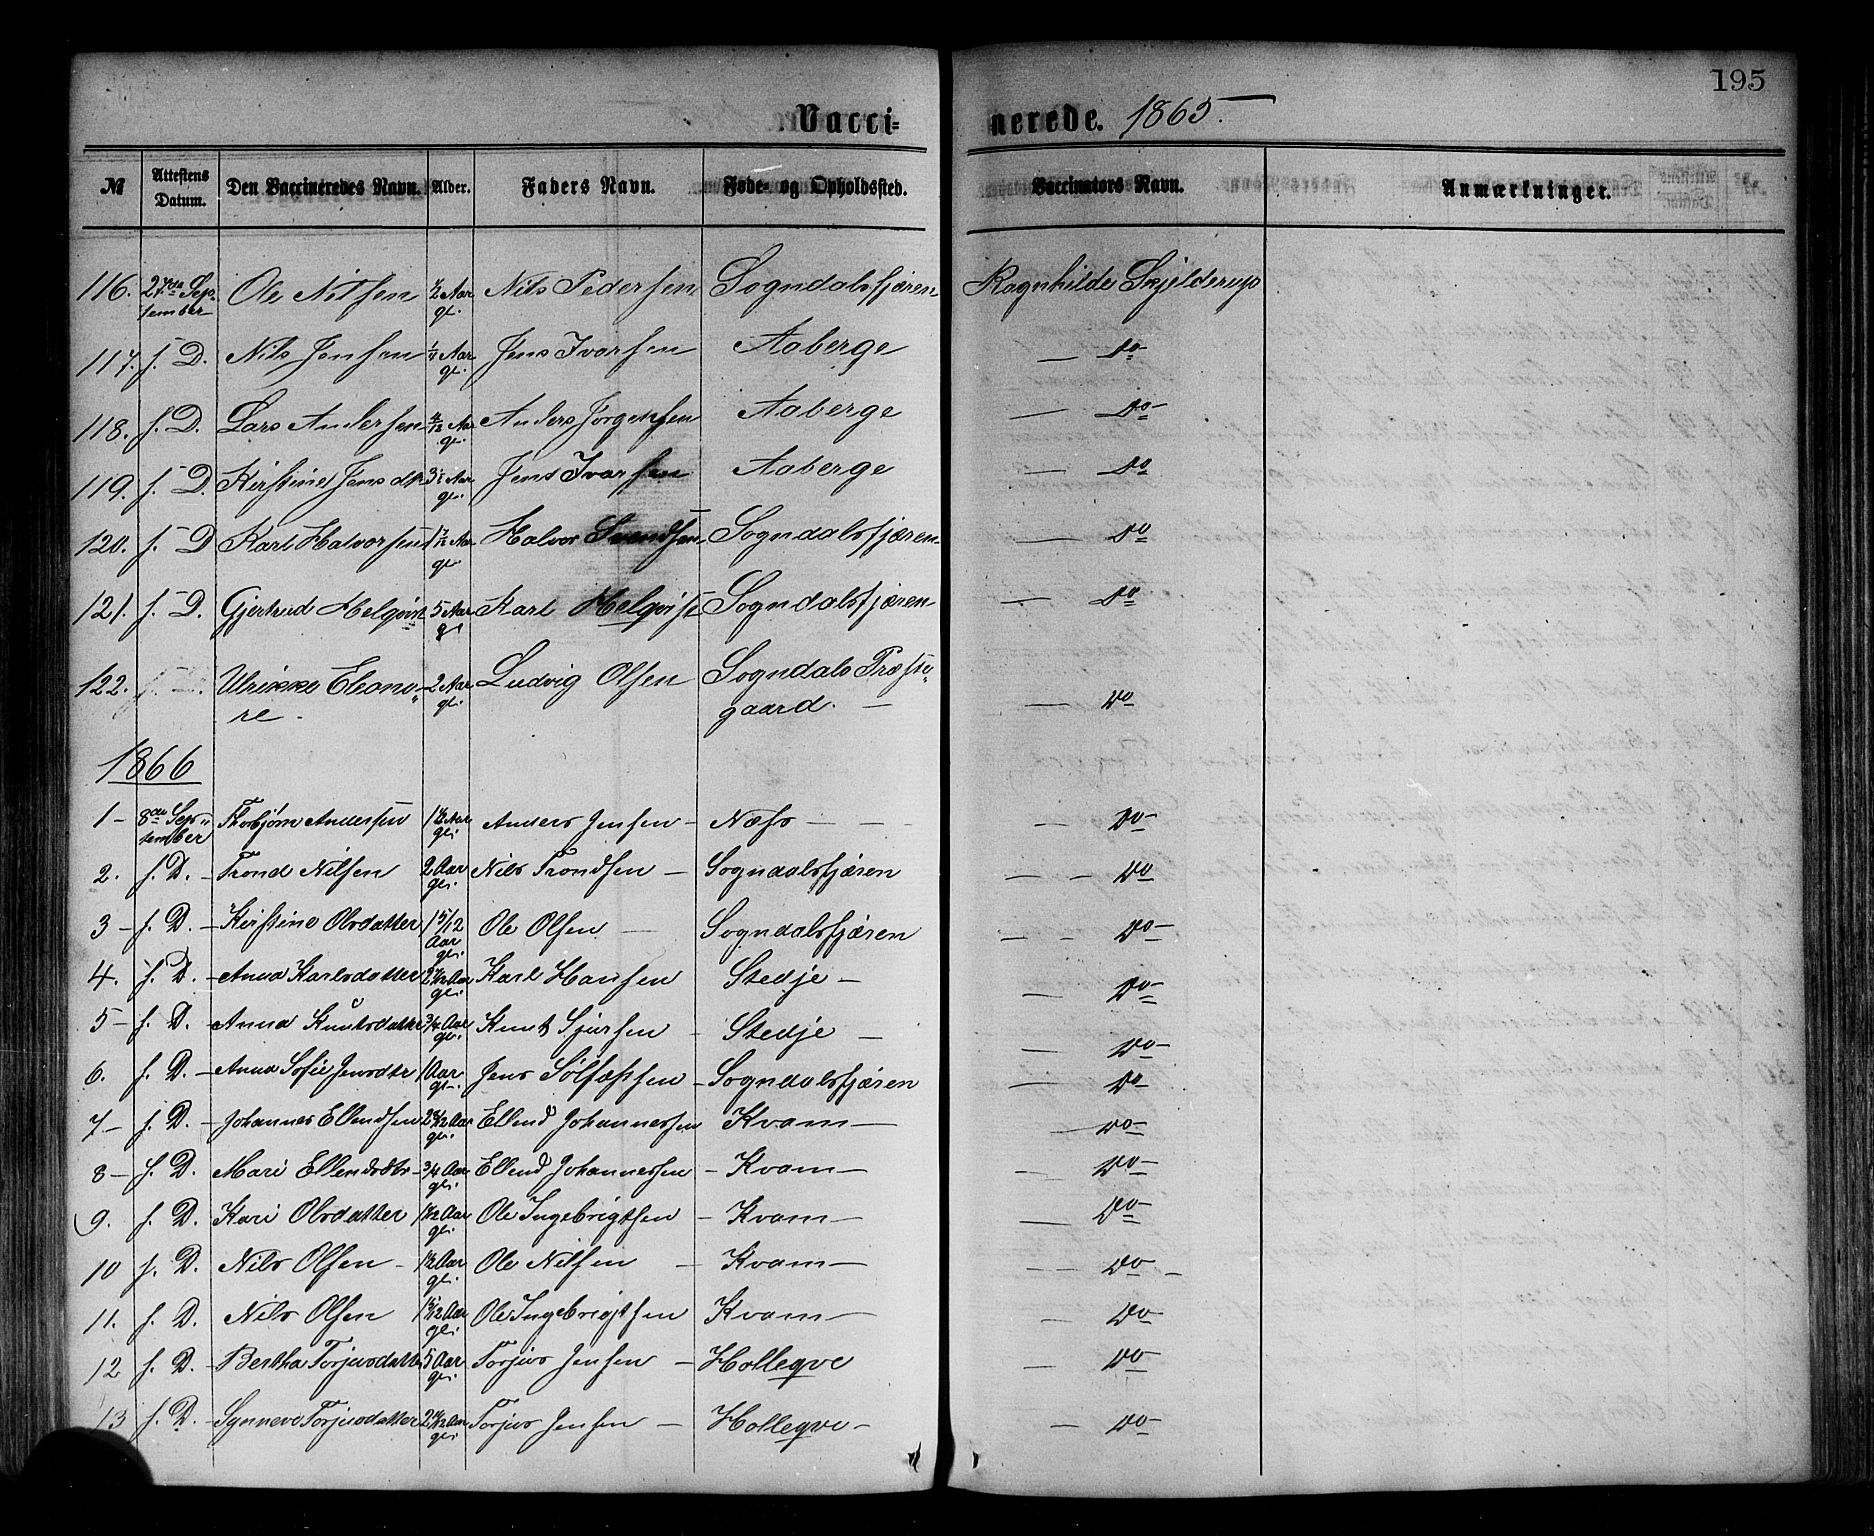 195
Vacci= nerede. 1865.
№ Attestens Datum. Den Vaccineredes Navn. Alder. Faders Navn. Føde- og Opholdssted. Vaccinators Navn. Anmærkninger.
116. 27de Sep- Ole Nilsen ½ Aar Nils Pedersen Sogndalsfjæren Ragnhilde Skjelderup
tember gl.
117. s. D. Nils Jensen ¼ Aar Jens Ivarsen Aaberge — Do
gl.
118. s. D. Lars Andersen Aar Anders Jørgensen Aaberge — Do —
gl.
119. s. D. Kirstine Jensdtr 3½ Aar Jens Ivarsen Aaberge — Do
gl.
120. s. D Karl Halvorsen Aar Halvor Svendsen Sogndalsfjæren — Do
gl.
121. s. D. Gjertrud Helqvist 5 Aar Karl Helqvist Sogndalsfjæren — Do
gl
122. Ulrikke Eleono- 2 Aar Ludvig Olsen Sogndals Præste-
re. gl. gaard. — — Do
1866
1 - 8de Sep- Thorbjørn Andersen 1½ Aar Anders Jensen - Næss — — — Do —
tember gl.
2. s. D. - Trond Nilsen 2 Aar Nils Trondsen — Sogndalsfjæren — — Do
gl.
3 - s. D. - Kirstine Olsdatter 1 5/12 Ole Olsen — Sogndalsfjæren — - Do —
Aar
gl.
4. s. D. - Anna Karlsdatter Aar Karl Hansen Stedje — — Do
gl.
5 - s. D. - Anna Knutsdatter ¾ Aar Knut Sjursen - Stedje — — Do —
gl.
6. s. D. - Anna Sofie Jensdtr 1 Aar Jens Sølfæstsen - Sogndalsfjæren — Do
gl.
7 - s. D. - Johannes Ellendsen Aar Ellend Johannessen Kvam — — Do —
gl.
8 - s. D. - Mari Ellendsdtr - ¾ Aar Ellend Johannessen - Kvam — — Do —
gl.
9. s. D. - Kari Olsdatter Aar Ole Ingebrigtsen - Kvam — — Do —
gl.
10 s. D. - Nils Olsen - 1½ Aar Ole Nilsen - Kvam — — Do —
gl.
11. s. D. - Nils Olsen Aar Ole Ingebrigtsen Kvam — — Do
gl.
12 s. D. - Bertha Torjusdatter 5 Aar Torjus Jensen — Holleqve — Do
gl.
13 s. D. - Synneve Torjusdatter Aar Torjus Jensen — Holleqve - — Do —
gl.